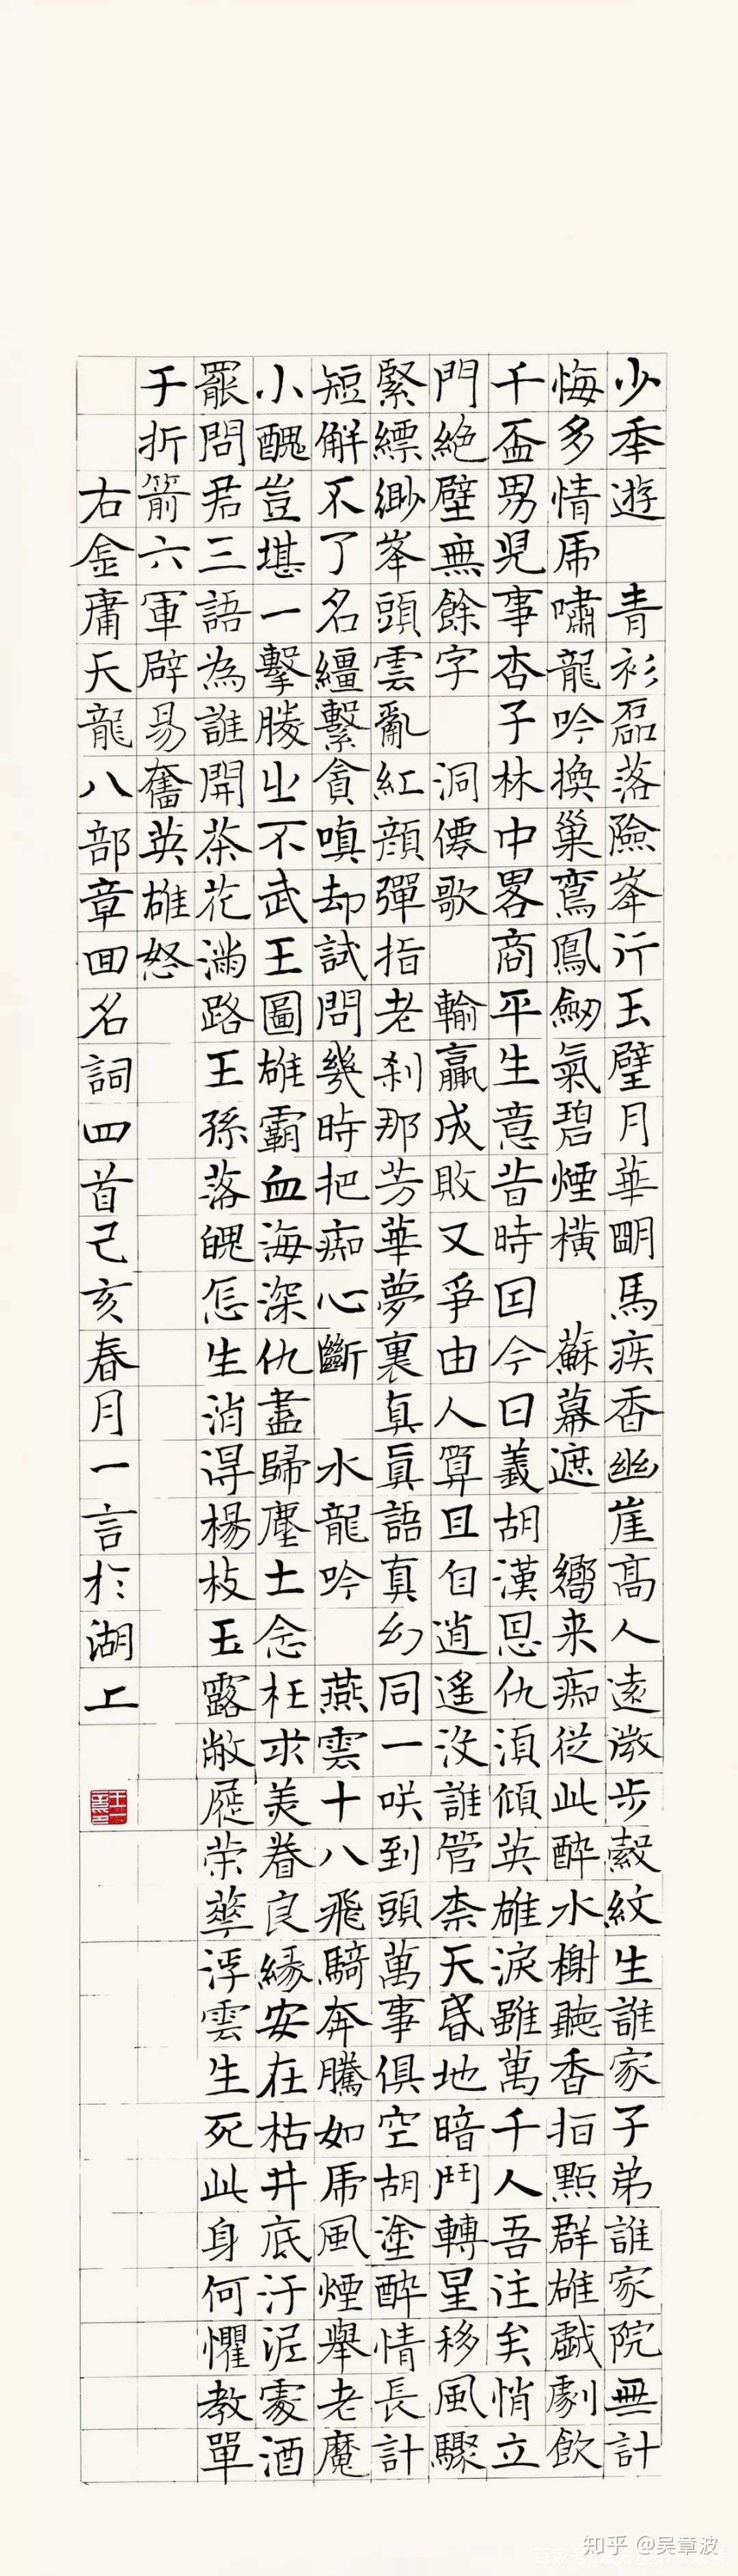 少秊遊　青衫磊落險峯行玉璧月華朙馬疾香幽崖高人遠微步縠紋生誰家子弟誰家院無計
悔多情虎嘯龍吟換巢鸞鳳劒氣碧煙橫　蘇幕遮　嚮来痴從此醉水榭聽香指點群雄戲劇飲
千盃男兒事杏子林中畧商平生意昔時因今日義胡漢恩仇須傾英雄淚雖萬千人吾往矣悄立
門絕壁無餘字　洞僊歌　輸贏成敗又爭由人算且自逍遙沒誰管柰天昏地暗鬥轉星移風驟
緊縹緲峯頭雲亂紅顔彈指老刹那芳華夢裏真眞語真幻同一咲到頭萬事俱空胡塗醉情長計
短解不了名繮繫貪嗔却試問幾時把痴心斷　水龍吟　燕雲十八飛騎奔騰如虎風煙舉老魔
小醜豈堪一擊勝之不武王圖雄霸血海深仇盡歸塵土念枉求美眷良緣安在枯井底汙泥處酒
罷問君三語為誰開茶花滿路王孫落魄怎生消得楊枝玉露敝屣荣華浮雲生死此身何懼教單
于折箭六軍辟易奮英雄怒
右金庸天龍八部章回名詞四首己亥春月一言於湖上
知乎 @吴章波